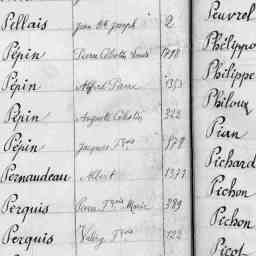 Pellais Jean Bte Joseph 2
Pépin Pierre Célestin Louis
Pépin Alfred Pierre 1353
Pépin Auguste Célestin 322
Pépin Jacques Fçois 878
Pernaudeau Albert 1377
Perquis Pierre Fçois Marie 389
Perquis Valéry Fçois 122
Peuvrel
Philippo
Philippe
Philoux
Pian
Pichard
Pichon
Pichon
Picot